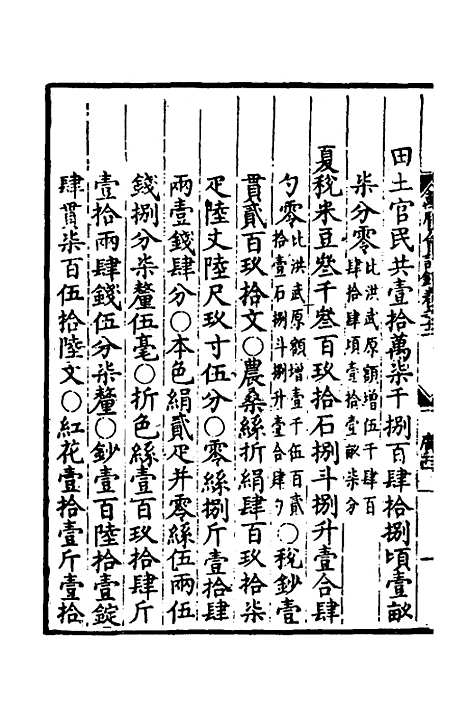 田土官民共壹拾萬柒千捌百肆拾捌頃壹畝
柒分零比洪武原額增伍千肆百肆拾肆頃壹拾壹畝柒分
夏稅米豆叁千叁百玖拾石捌斗捌升壹合肆
勺零比洪武原額增壹千伍百貳拾壹石捌斗捌升壹合肆勺〇稅鈔壹
貫貳百玖拾文〇農桑絲折絹肆百玖拾柒
疋陸丈陸尺玖寸伍分〇零絲捌斤壹拾肆
兩壹錢肆分〇本色絹貳疋并零絲伍兩伍
錢捌分柒釐伍毫〇折色絲壹百玖拾肆斤
壹拾兩肆錢伍分柒釐〇鈔壹百陸拾壹錠
肆貫柒百伍拾陸文〇紅花壹拾壹斤壹拾